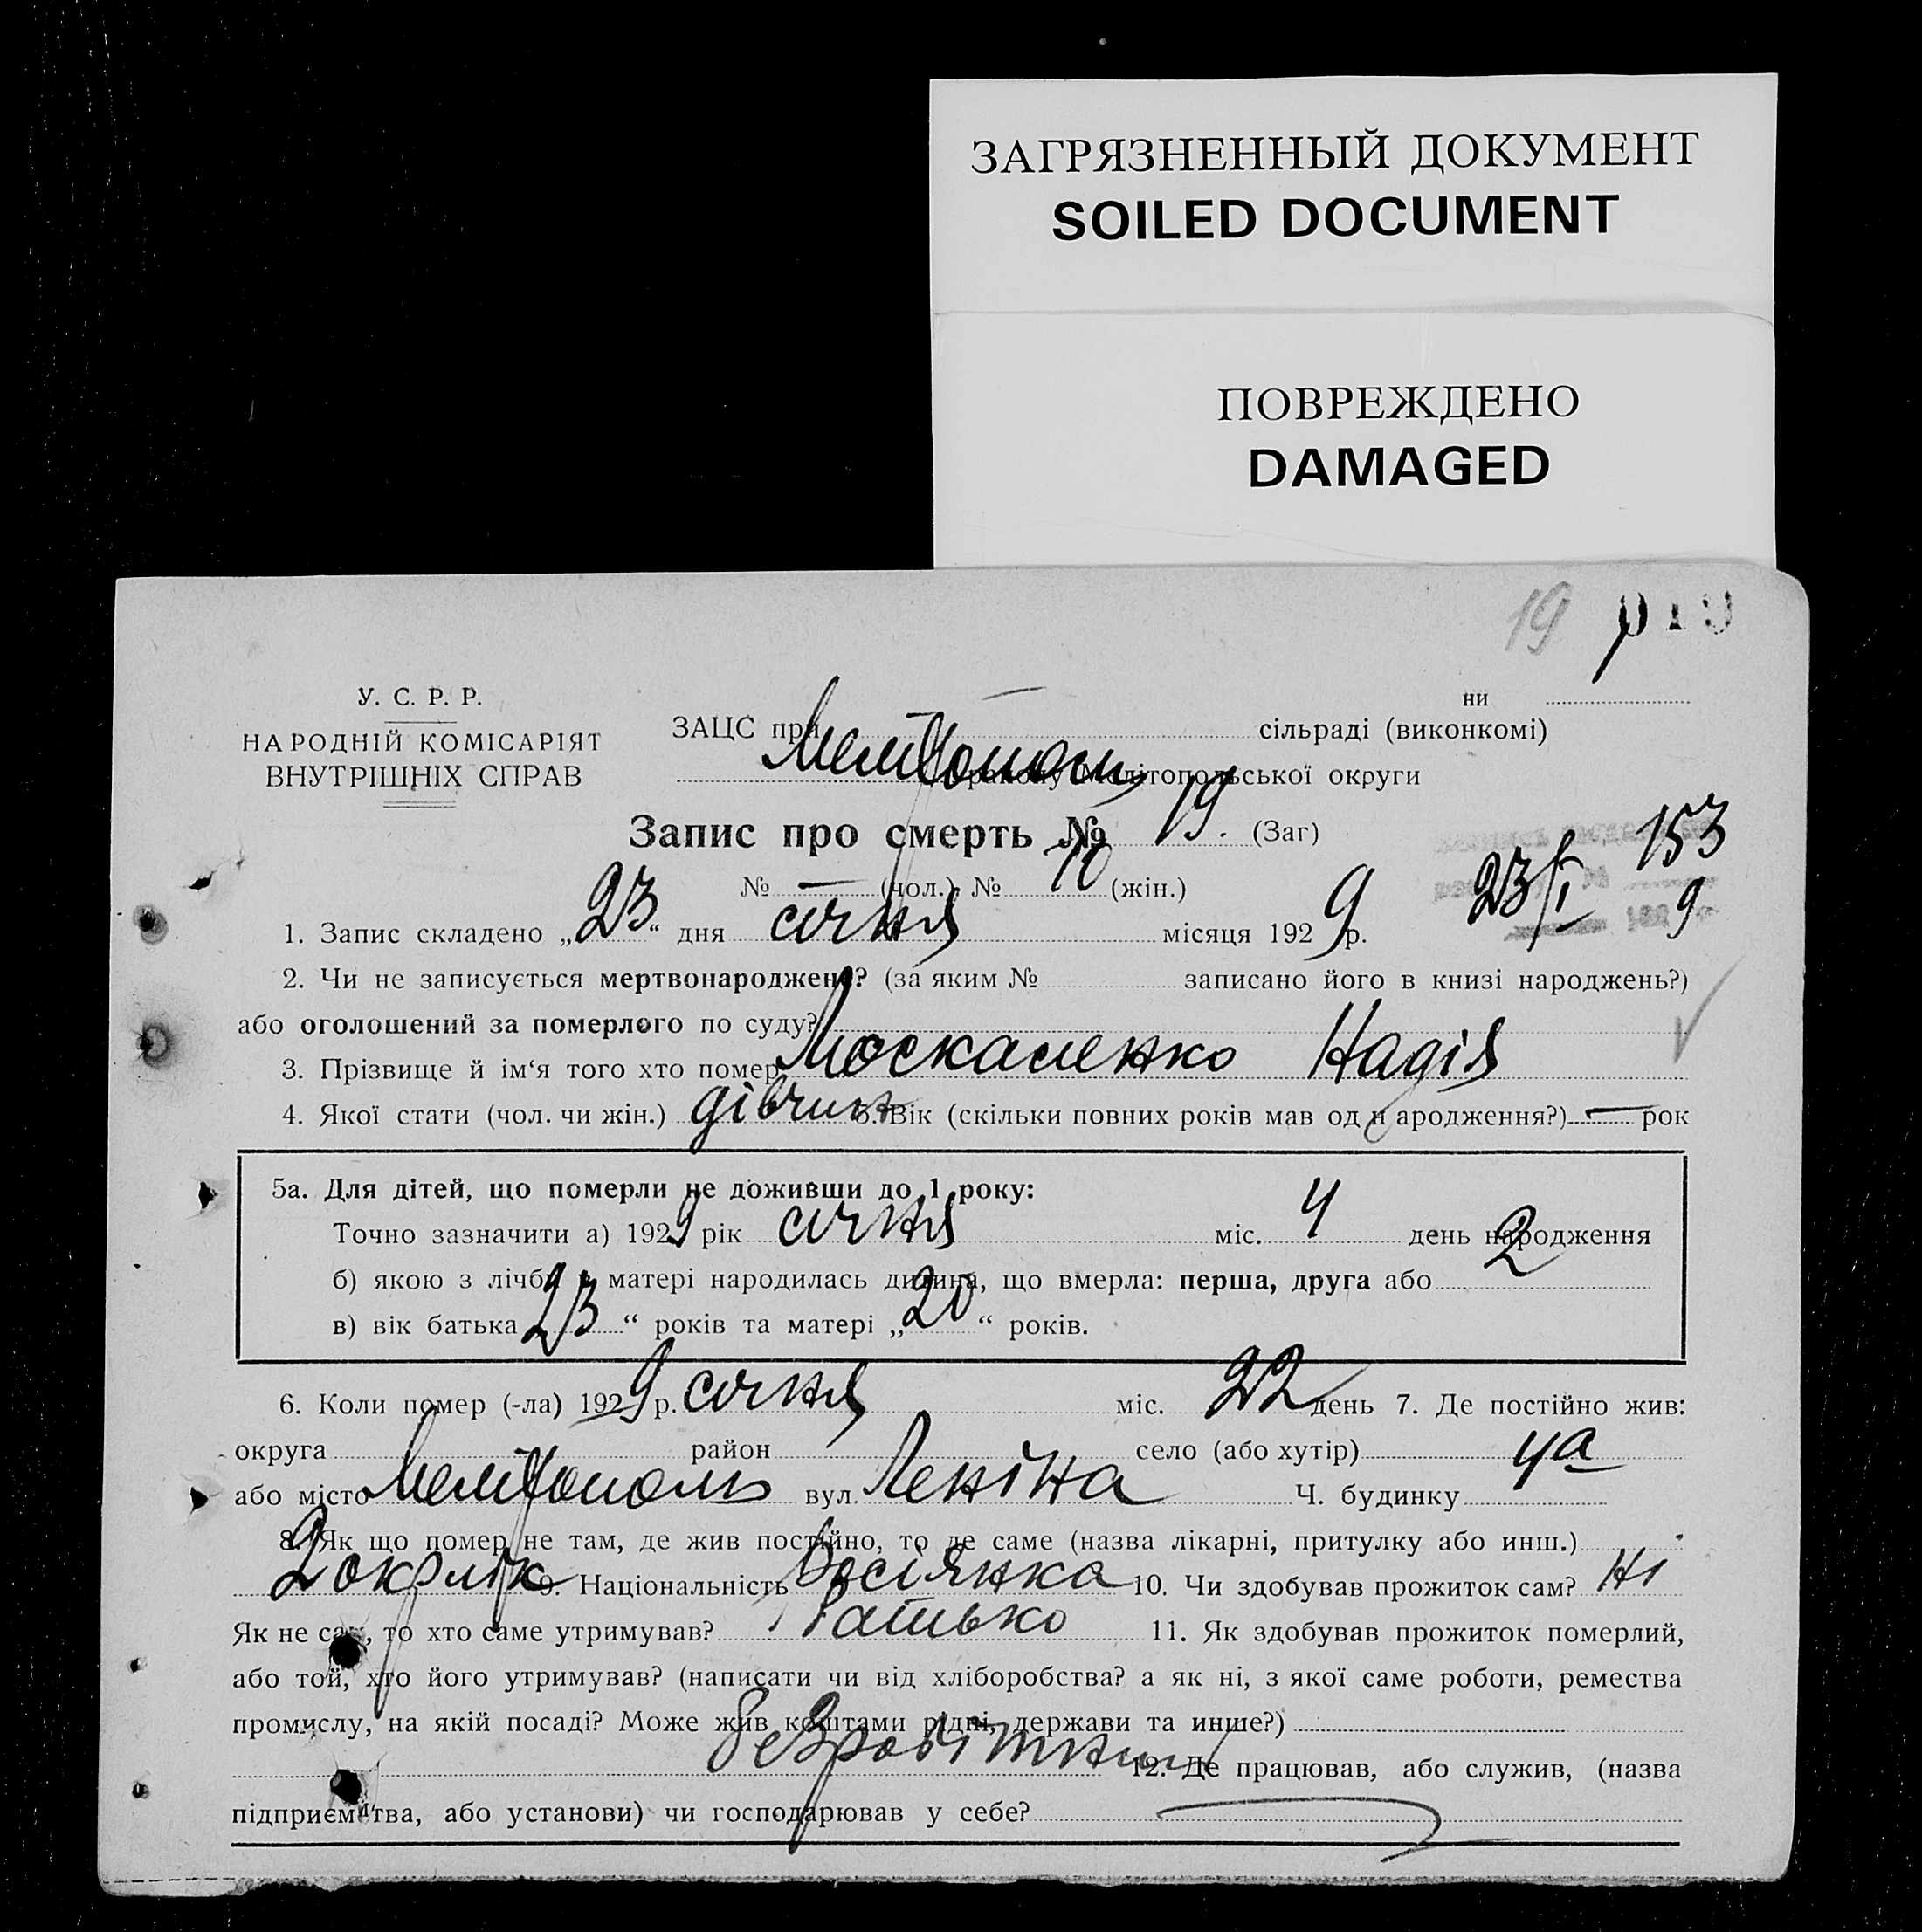 ЗАГРЯЗНЕННЫЙ ДОКУМЕНТ
SOILED DOCUMENT
ПОВРЕЖДЕНО
DAMAGED
19 019
У. С. Р. Р. ни
НАРОДНІЙ КОМІСАРІЯТ ЗАЦС при сільраді (виконкомі)
ВНУТРІШНІХ СПРАВ Мелітополь району Мелітопольської округи
Запис про смерть № 19. (Заг) 153
№ — (чол.) № 10 (жін.) 23/I 9
1. Запис складено „23“ дня січня місяця 1929 р.
2. Чи не записується мертвонароджене? (за яким № записано його в книзі народжень?)
або оголошений за померлого по суду?
3. Прізвище й ім‘я того хто помер Москаленко Надія
4. Якої стати (чол. чи жін.) дівчина 5. Вік (скільки повних років мав од н ародження?) — рок
5а. Для дітей, що померли не доживши до 1 року:
Точно зазначити а) 1929 рік січня міс. 4 день народження
б) якою з лічби у матері народилась дитина, що вмерла: перша, друга або 2
в) вік батька 23“ років та матері „20“ років.
6. Коли помер (-ла) 1929 р. січня міс. 22 день 7. Де постійно жив:
округа район село (або хутір)
або місто Мелітополь вул. Леніна Ч. будинку 4а
8. Як що помер не там, де жив постійно, то де саме (назва лікарні, притулку або инш.)
2 окрлік 9. Національність Росіянка 10. Чи здобував прожиток сам? Ні
Як не сам, то хто саме утримував? Батько 11. Як здобував прожиток померлий,
або той, хто його утримував? (написати чи від хліборобства? а як ні, з якої саме роботи, ремества
промислу, на якій посаді? Може жив коштами рідні, держави та инше?)
безробітний 12. Де працював, або служив, (назва
підприємства, або установи) чи господарював у себе?